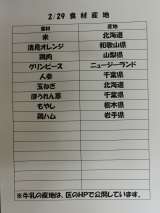 2/29 食材産地
食材 産地
米 北海道
清見オレンジ 和歌山県
鶏肉 山梨県
グリンピース ニュージーランド
人参 千葉県
玉ねぎ 北海道
ほうれん草 千葉県
もやし 栃木県
鶏ハム 岩手県
※牛乳の産地は、区のHPで公開しています。